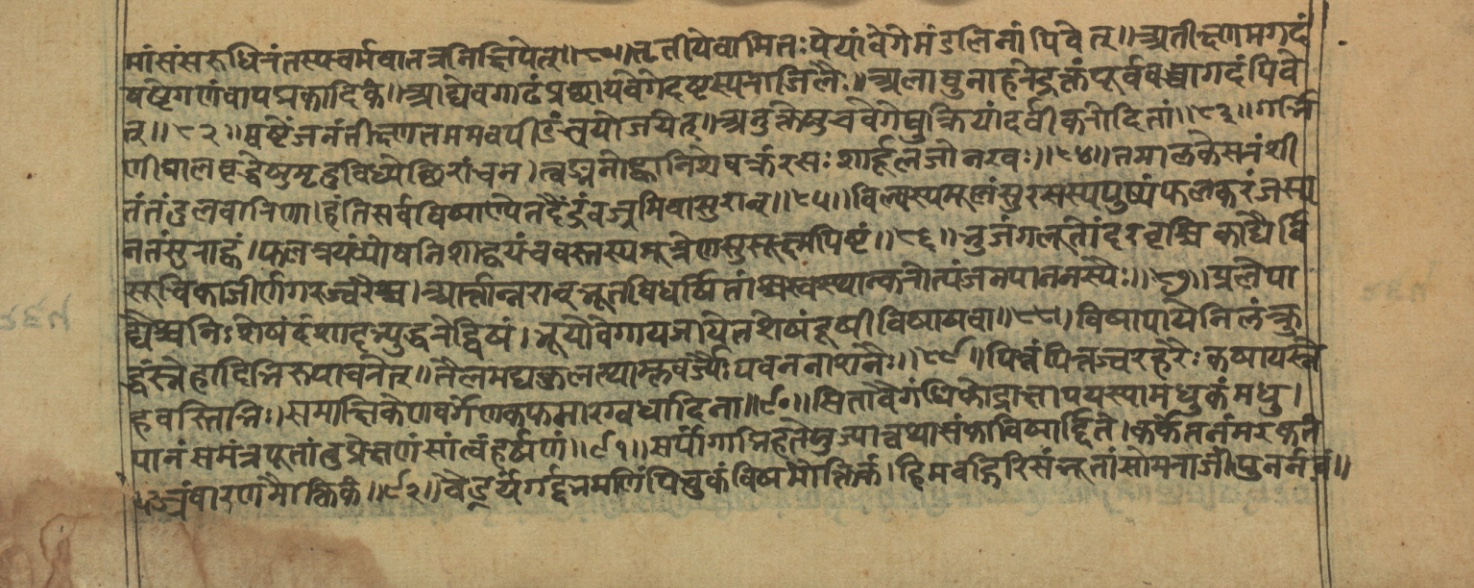 मांसं सरुधिरं तस्य चर्म वा तत्र निक्षिपेत्॥८१॥ तृतीये वामितः पेयां वेगे मंडलिनां पिवेत्॥ अतीक्ष्णमगदं
षष्टे गणं वा पद्मकादिकं॥ आद्ये वगाढं प्रछाय वेगे दष्टस्य राजिलैः॥ अलाबुना हरेद्रक्तं पूर्ववच्चागदं पिवे
त्॥८२॥ षष्टें जनं तीक्ष्णतममवपीडं च योजयेत्॥ अनुक्तेषु च वेगेषु क्रियां दर्वीकरोदितां॥८३॥ गर्भि
णीबालवृद्धेषु मृदु विध्येच्छिरां च न। त्वङ्मनोह्वा निशे वक्रं रसः शार्दूलजो नखः॥८४॥ तमालः केसरं शी
तं तंडुलवारिणा। हंति सर्वविषाण्येतदैंद्रं वज्रमिवासुरान्॥८५॥ विल्वस्य मूलं सुरसस्य पुष्पं फलं करंजस्य
नतं सुराह्वं। फलत्रयं व्योषनिशाद्वयं च वस्तस्य मूत्रेण सुसूक्ष्मपिष्टं॥८६॥ भुजंगलूतोंदरवृश्चिकाद्यैर्वि
सूचिकाजीर्णगरज्वरैश्च। आर्तान्नरान् भूतविधर्षितांश्च स्वस्थान्करोत्यंजनपाननस्यैः॥८७॥ प्रलेपा
द्यैश्च निःशेषं दंशादप्युद्धरेद्विषं। भूयो वेगाय जायेत शेषं दूषीविषाय वा॥८८॥ विषापायेनिलं क्रु
द्धं स्नेहादिभिरुपाचरेत्॥ तैलमद्यकुलत्थाम्लवर्ज्यैः पवननाशनैः॥८९॥ पित्तं पित्तज्वरहरैः कषायस्ने
हवस्तिभिः। समाक्षिकेण वर्गेण कफमारग्वधादिना॥९०॥ सिता वैगंधिको द्राक्षा पयस्या मधुकं मधु।
पानं समंत्रपूतांबु प्रोक्षणं सांत्वहर्षणं॥९१॥ सर्पांगाभिहते युंज्यात्तथा शंकाविषार्दिते। कर्केतनं मरकतं
वज्रं वारणमौक्तिकं॥९२॥ वैडूर्यं गर्दभमणिं पिचुकं विषमौक्तिकं। हिमवद्गिरिसंभूतां सोमराजीं पुनर्नवां॥